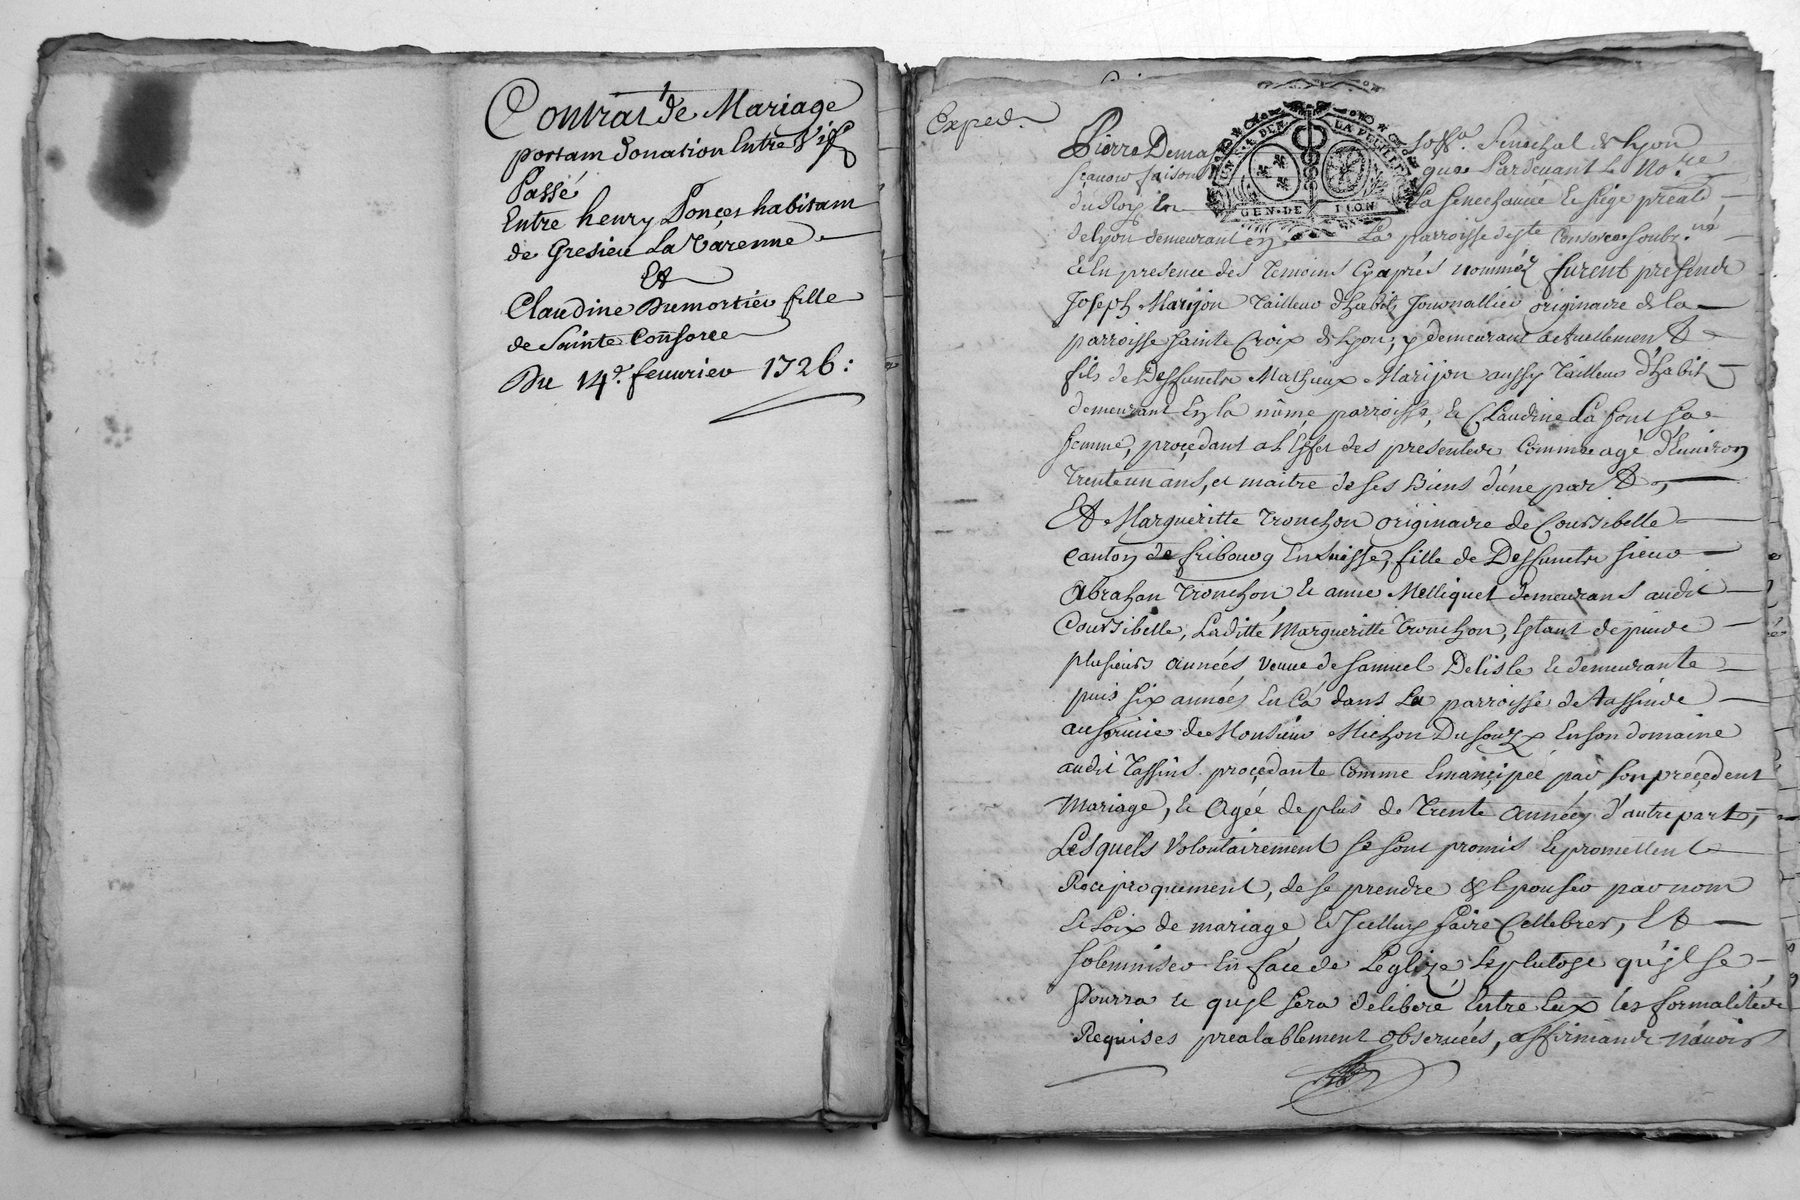 Contrat de Mariage
portam donation Entre Vifs
Passé
Entre henry Ponçes habitam
de Gresieu La Varenne
Et
Claudine Dumortier fille
de Sainte Consorce
Du 14e. feuurier 1726:
Exped.
Pierre Dema Senechal de Lyon
scauoir faisons que Pardeuant Le Nore
du Roy En La Senechaucé Et Siege
de Lyon demeurant en La parroisse de ste Consorce soubz.né
& En presence des Temoins Cyaprés nomméz furent presens
Joseph Marijon Tailleur d'habits Journallier originaire de la
parroisse Sainte Croix de Lyon, y demeurant actuellement
fils de Deffuncts Matheux Marijon aussy Tailleur d'habits
demeurant En la même parroisse, & Claudine La font sa
femme, proçedant a L'effet des presentes Comme agé d'Enuiron
Trente un ans, et maitre de ses Biens d'une part,
Et Margueritte Tronchon originaire de Coursibelle
Canton de fribourg En Suisse, fille de Deffuncts sieur
Abrahan Tronchon, & anne Melliquet demeurans audit
Coursibelle, Laditte Margueritte Tronchon, Estant depuis
plusieurs années veuue de Samuel Delisle & demeurante
puis six années En Cá dans La parroisse de Tassins
au seruice de Monsieur Michon En son domaine
audit Tassins. proçedante Comme Emançipée par son preçedent
Mariage, & Agée de plus de Trente années d'autre part,
Lesquels Volontairement se sont promis & promettent
Reciproquement, de se prendre & Epouser par nom
& Loix de mariage & Icelluy faire Cellebrer, Et
Solemniser En face de L'eglize Le plutost qu'jl se
pourra & qujl sera deliberé Entre Eux les formalités
Requises prealablement obseruées, affirmans n'auoir